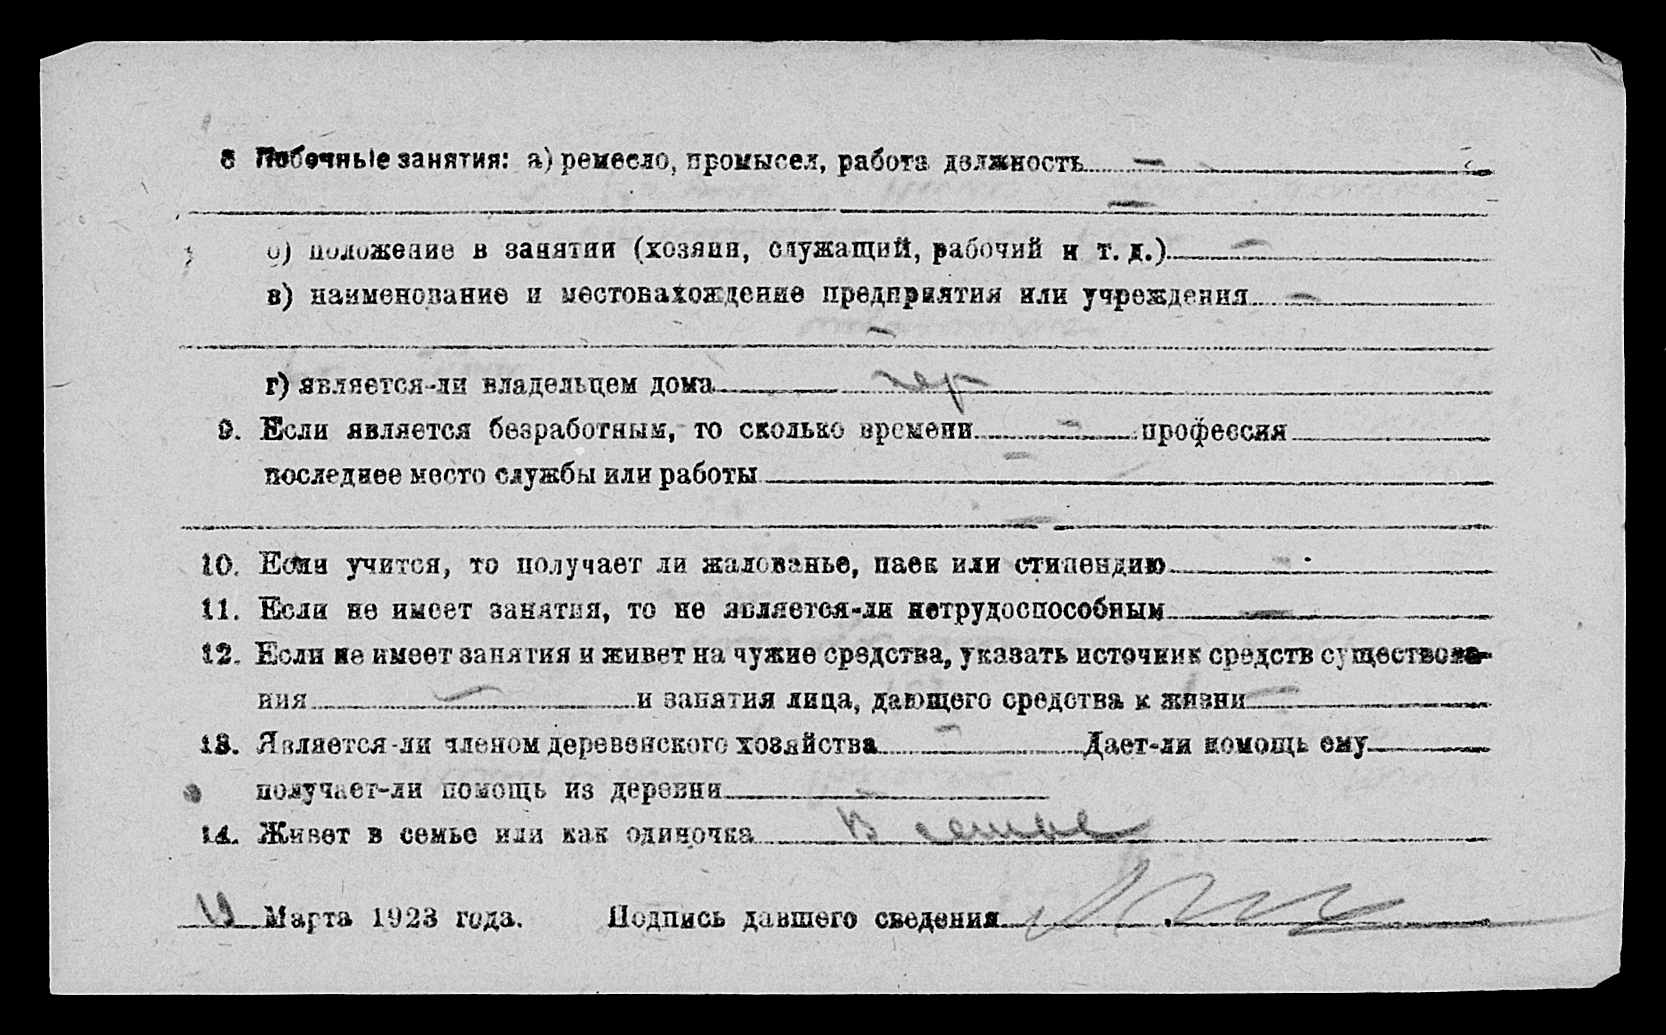 8 Побочные занятия: а) ремесло, промысел, работа должность —
—
б) положение в занятии (хозяин, служащий, рабочий и т. д.) —
в) наименование и местонахождение предприятия или учреждения —
—
г) является-ли владельцем дома
9. Если является безработным, то сколько времени — профессия
последнее место службы или работы —
—
10. Если учится, то получает ли жалованье, паек или стипендию —
11. Если не имеет занятия, то не является-ли нетрудоспособным —
12. Если не имеет занятия и живет на чужие средства, указать источник средств существова-
ния — и занятия лица, дающего средства к жизни —
13. Является-ли членом деревенского хозяйства — Дает-ли помощь ему
получает-ли помощь из деревни —
14. Живет в семье или как одиночка В семье
Марта 1923 года. Подпись давшего сведения